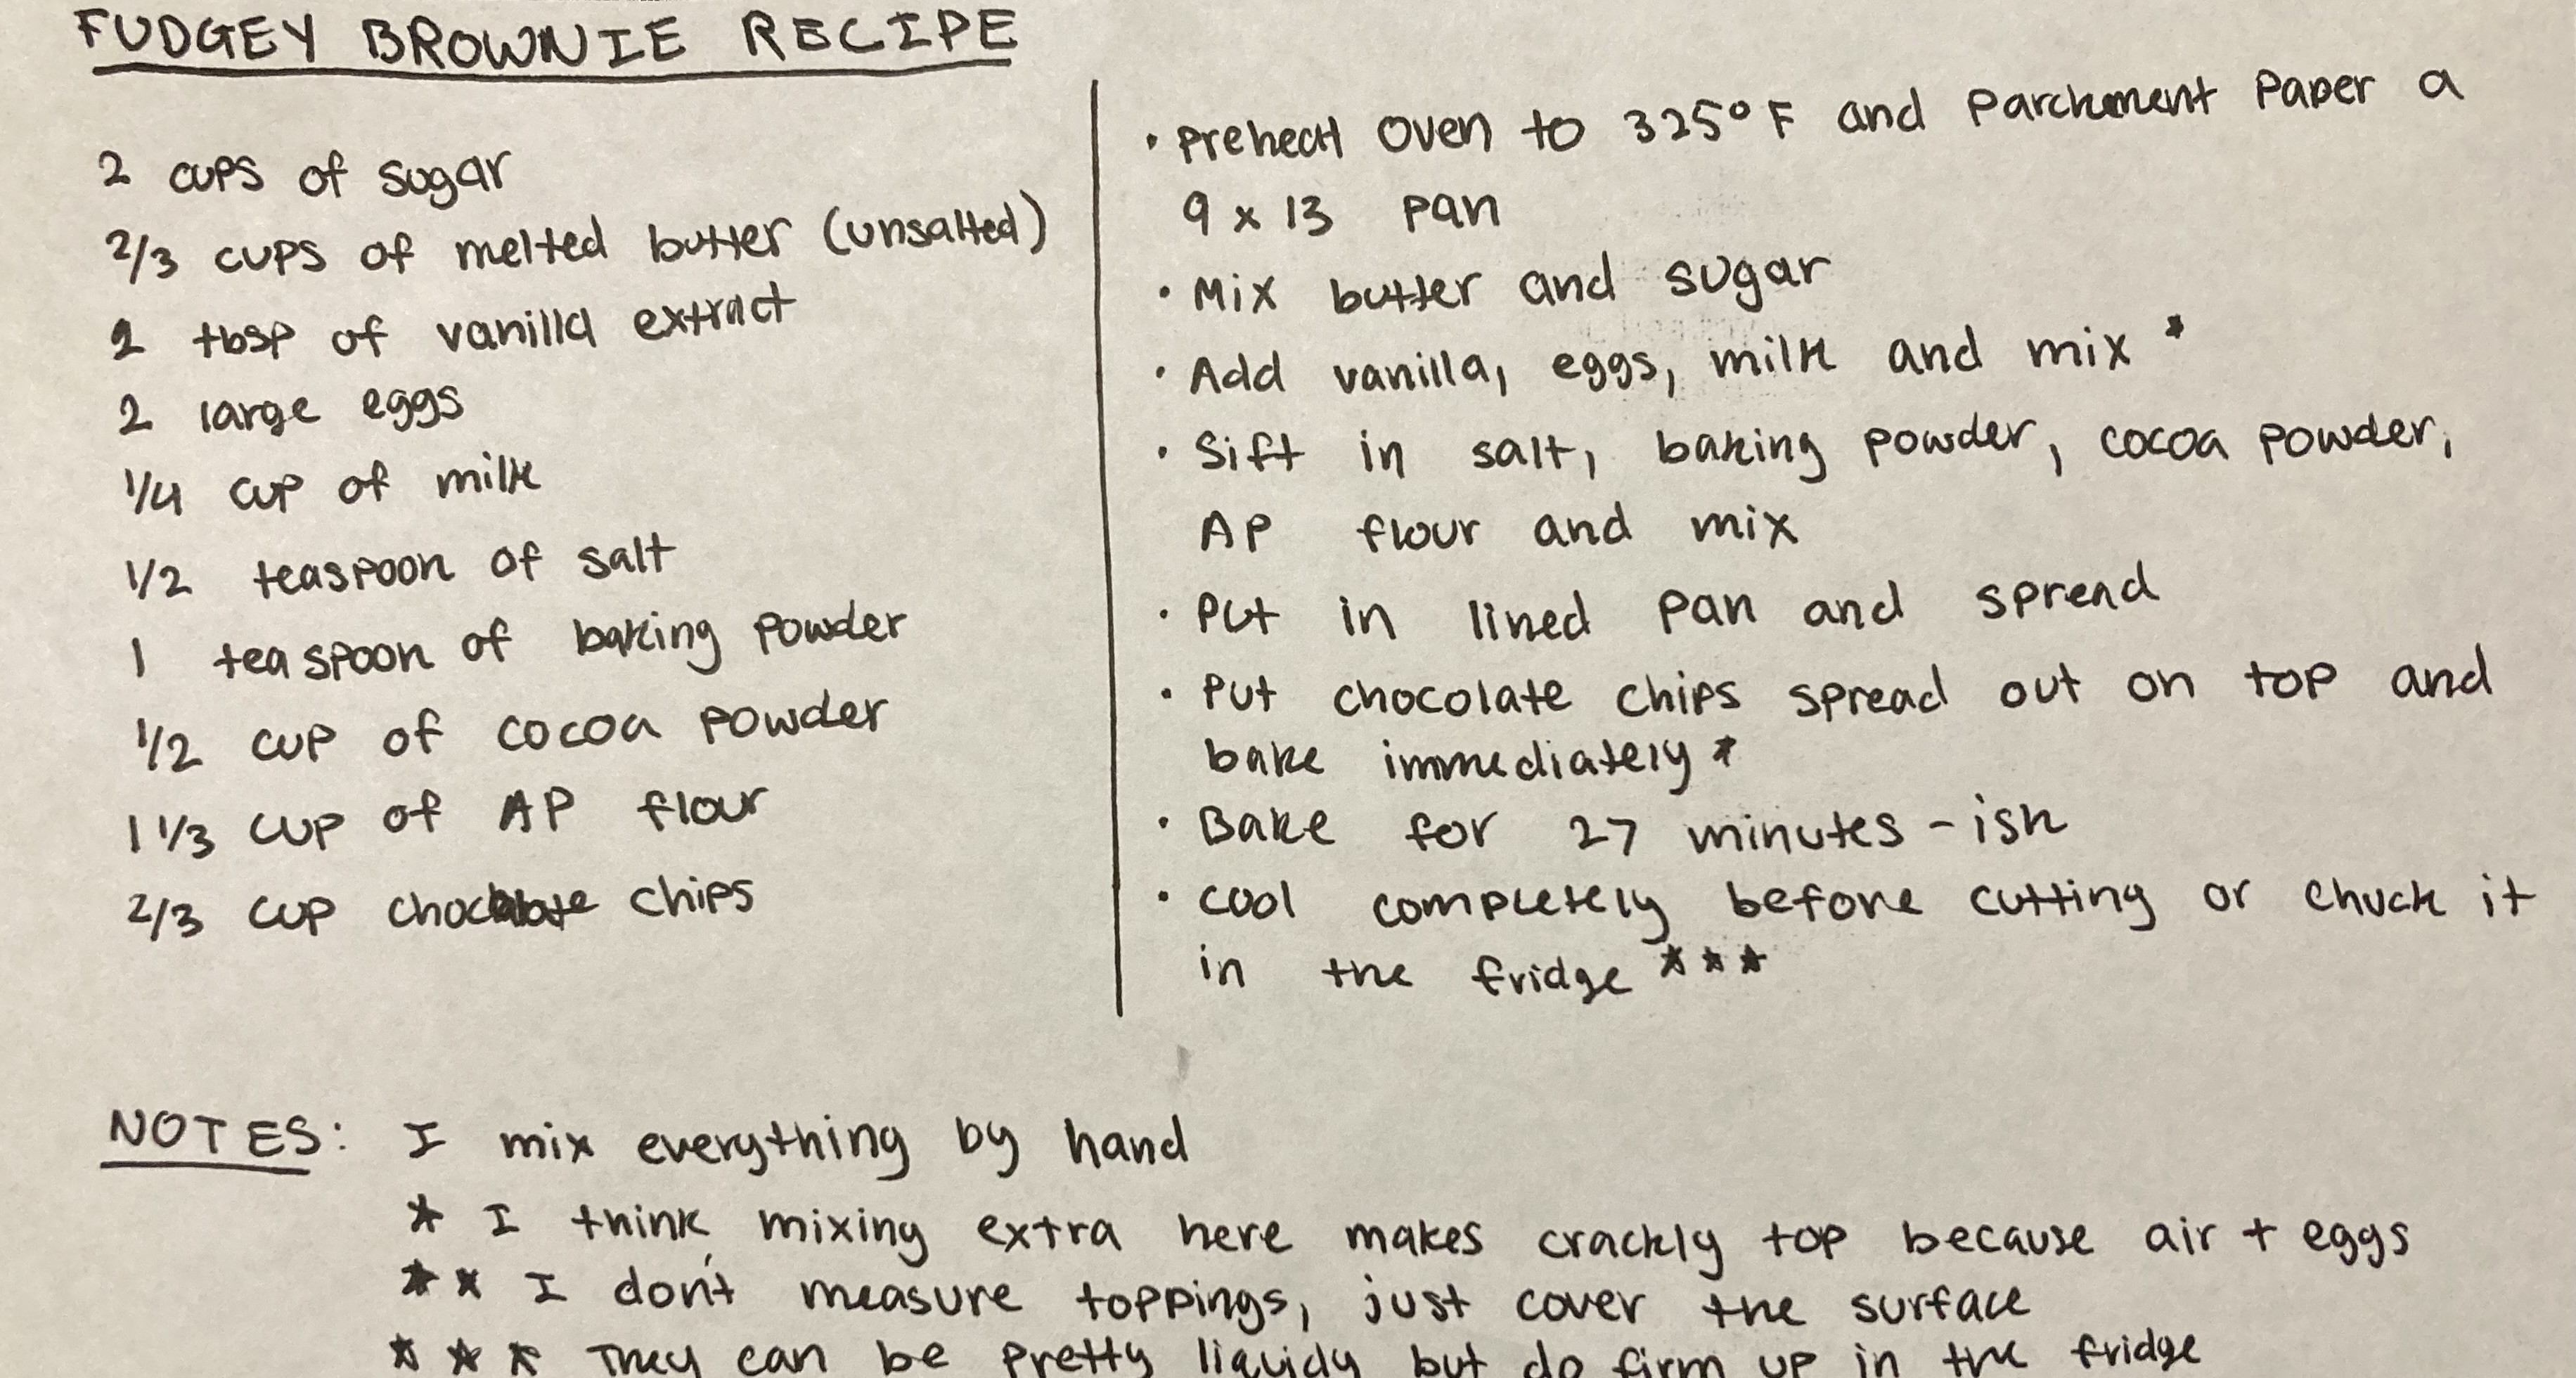 FUDGEY BROWNIE RECIPE
2 cups of sugar
2/3 cups of melted butter (unsalted)
2 tbsp of vanilla extract
2 large eggs
1/4 cup of milk
1/2 teaspoon of salt
1 teaspoon of baking powder
1/2 cup of cocoa powder
1 1/3 cup of AP flour
2/3 cup chocolate chips
• Preheat oven to 325° F and parchment paper a
9 x 13 pan
• Mix butter and sugar
• Add vanilla, eggs, milk and mix *
• Sift in salt, baking powder, cocoa powder,
AP flour and mix
• Put in lined pan and spread
• Put chocolate chips spread out on top and
bake immediately *
• Bake for 27 minutes - ish
• Cool completely before cutting or chuck it
in the fridge * * *
NOTES: I mix everything by hand
* I think mixing extra here makes crackly top because air + eggs
* * I don't measure toppings, just cover the surface
* * * They can be pretty liquidy but do firm up in the fridge